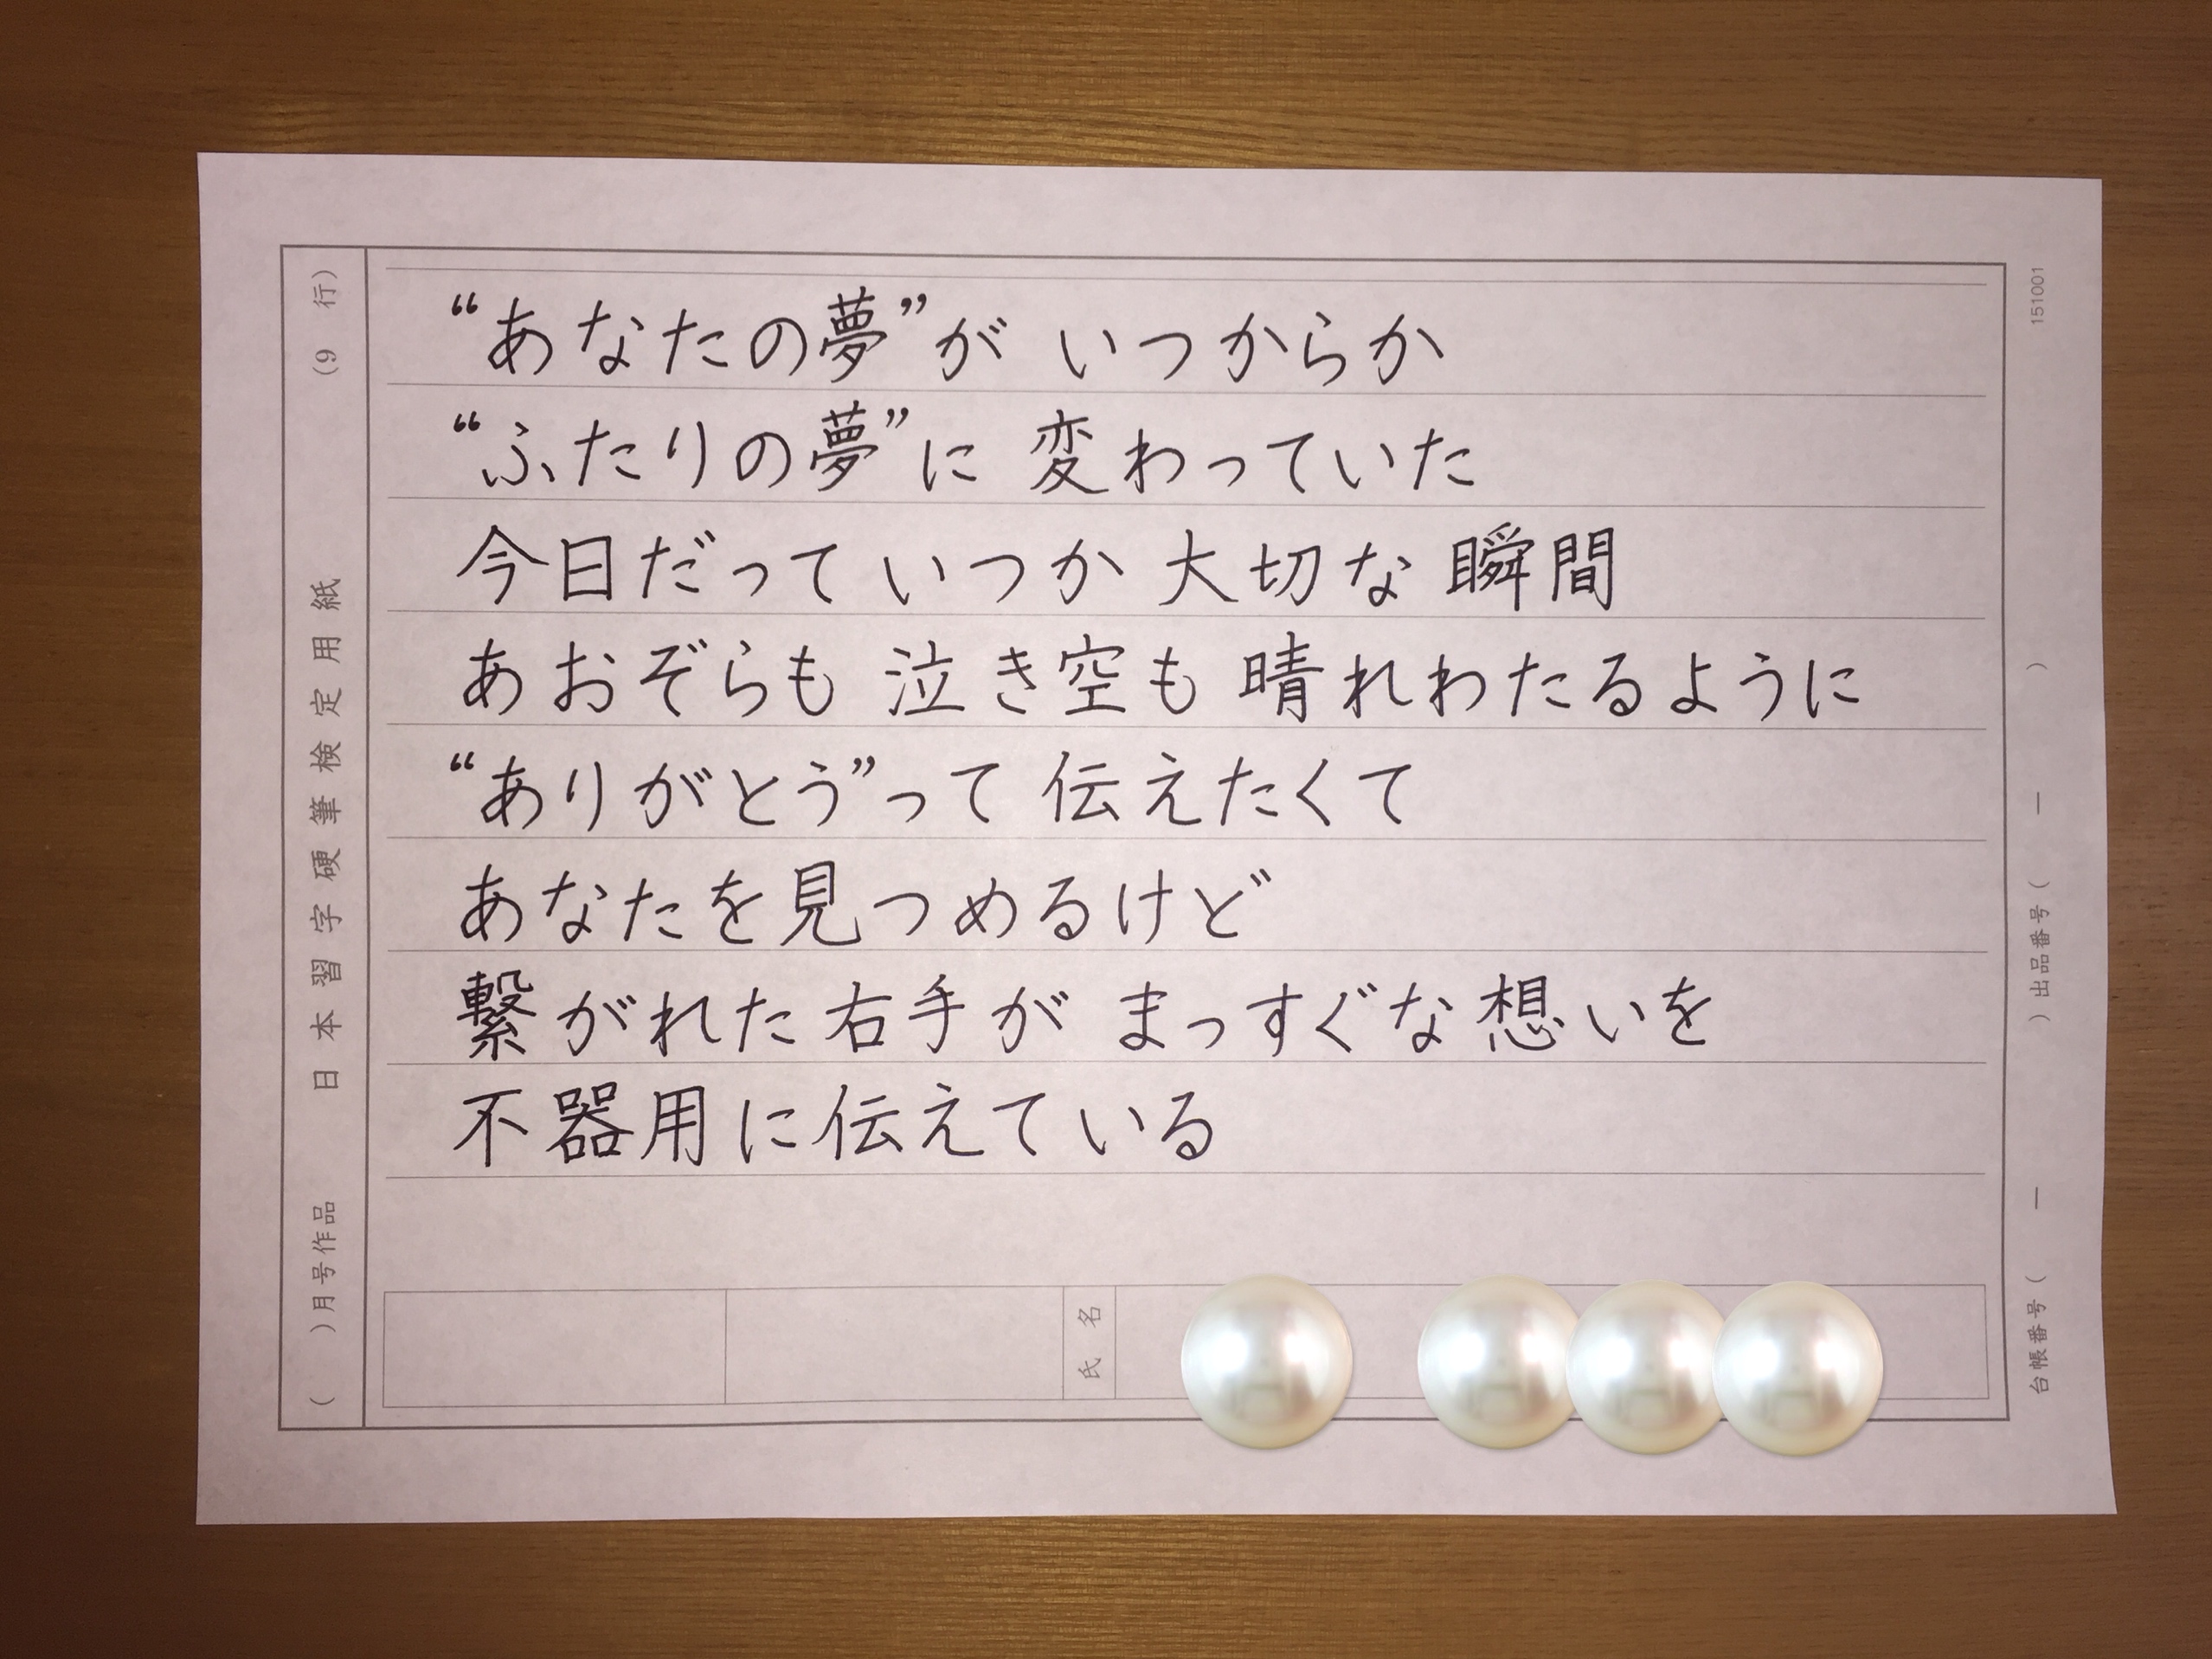 “あなたの夢”が いつからか
“ふたりの夢”に 変わっていた
今日だって いつか 大切な 瞬間
あおぞらも 泣き空も 晴れわたるように
“ありがとう”って 伝えたくて
あなたを見つめるけど
繋がれた右手が まっすぐな想いを
不器用に伝えている
( )月号作品 日本習字硬筆検定用紙 (9 行)
氏名
台帳番号( ー ー ) 出品番号( )
151001